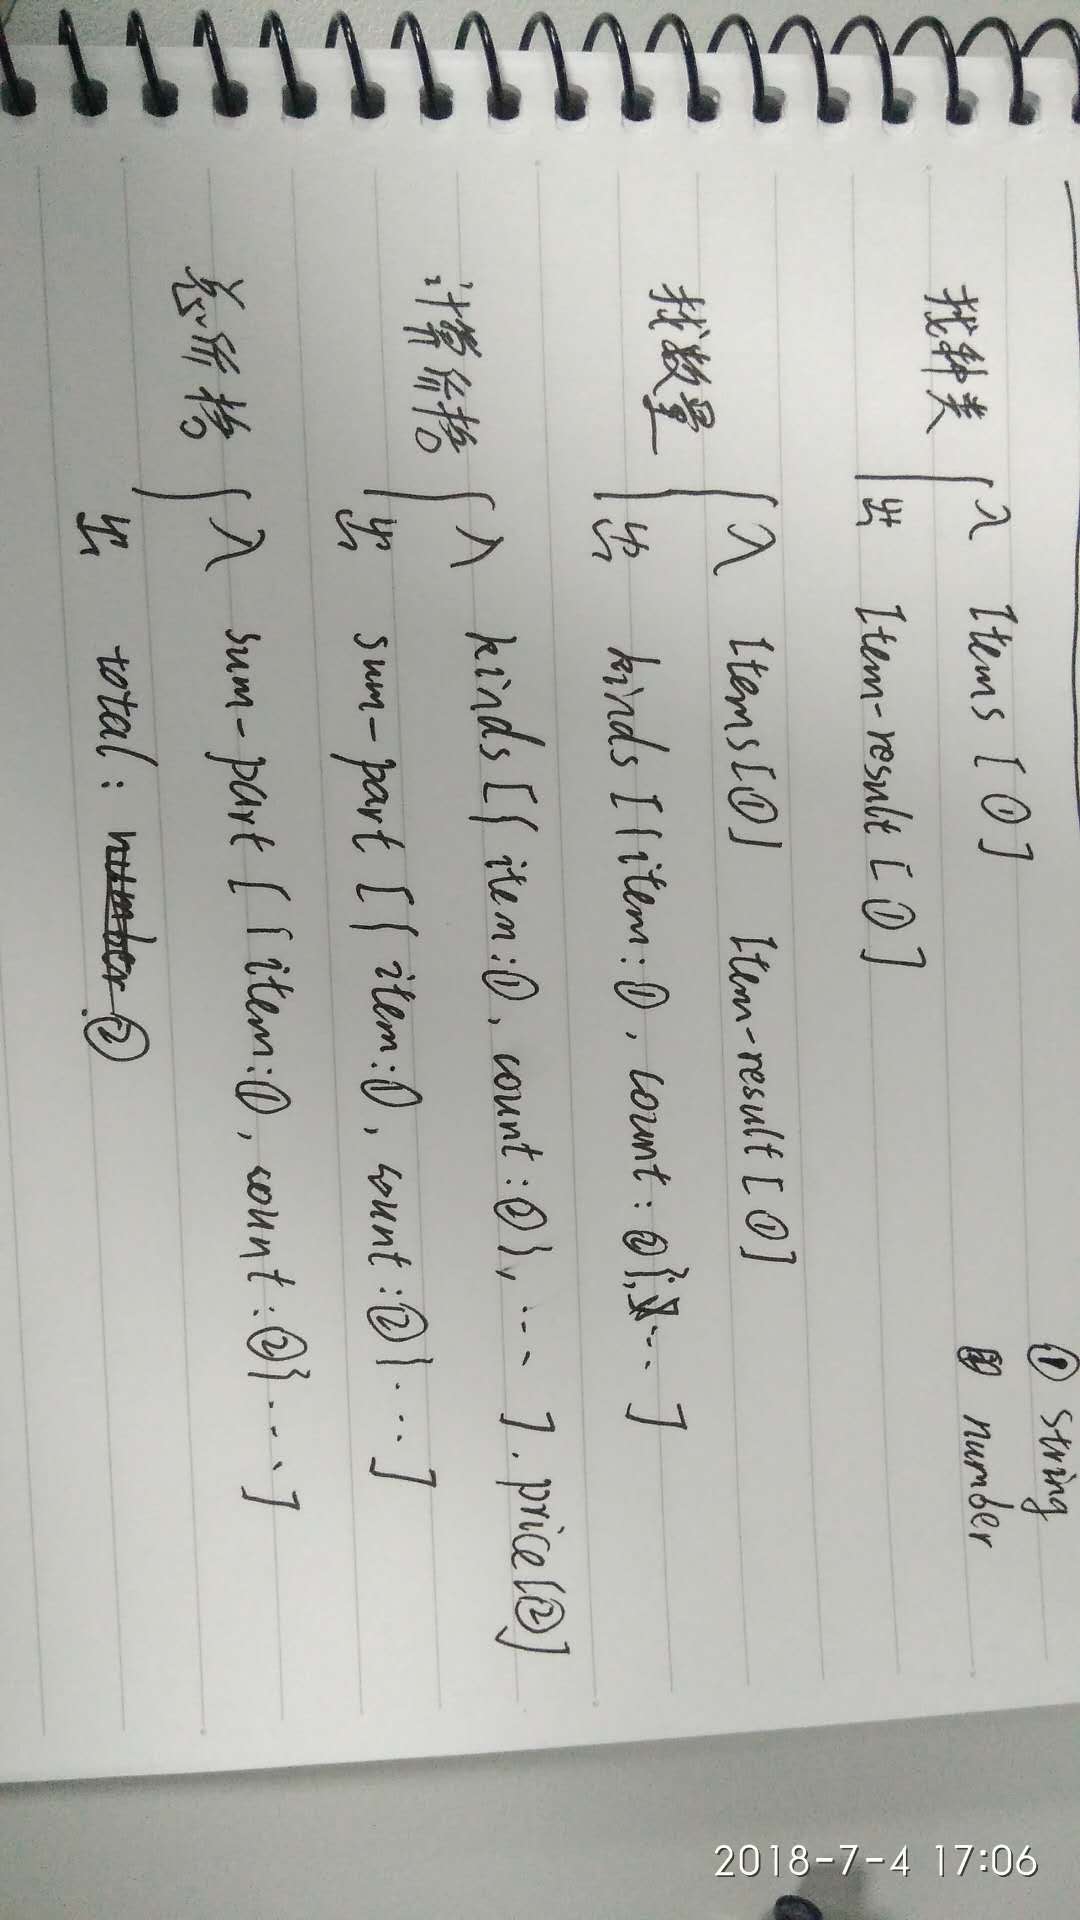 ① string
② number
找种类 { 入 Items [①]
出 Item-result [①]
找数量 { 入 Items[①] Item-result [①]
出 kinds [{item:①, count:②}, ... ]
计算价格 { 入 kinds [{item:①, count:②}, ... ]. price[②]
出 sum-part [{item:①, count:②} ... ]
总价格 { 入 sum-part [{item:①, count:②} ... ]
出 total: number ②
2018-7-4 17:06